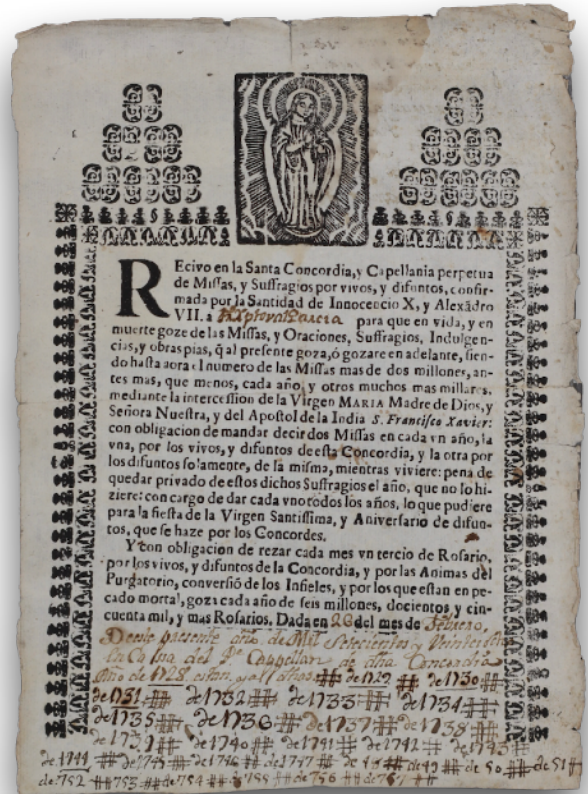 REcivo en la Santa Concordia, y Capellania perpetua
de Missas, y Suffragios por vivos, y difuntos, confir-
mada por la Santidad de Innocencio X, y Alexãdro
VII. a Xptoval Garcia para que en vida, y en
muerte goze de las Missas, y Oraciones, Suffragios, Indulgen-
cias, y obras pias, q̃ al presente goza, ó gozare en adelante, sien-
do hasta aora el numero de las Missas mas de dos millones, an-
tes mas, que menos, cada año, y otros muchos mas millares,
mediante la intercession de la Virgen MARIA Madre de Dios, y
Señora Nuestra, y del Apostol de la India S. Francisco Xavier:
con obligacion de mandar decir dos Missas en cada vn año, la
vna, por los vivos, y difuntos de esta Concordia, y la otra por
los difuntos solamente, de la misma, mientras viviere: pena de
quedar privado de estos dichos Suffragios el año, que no lo hi-
ziere: con cargo de dar cada vno todos los años, lo que pudiere
para la fiesta de la Virgen Santissima, y Aniversario de difun-
tos, que se haze por los Concordes.
Y con obligacion de rezar cada mes vn tercio de Rosario,
por los vivos, y difuntos de la Concordia, y por las Animas del
Purgatorio, conversiõ de los Infieles, y por los que estan en pe-
cado mortal, goza cada año de seis millones, docientos y cin-
cuenta mil, y mas Rosarios. Dada en 26 del mes de Febrero,
Deeste presente año de Mil Setecientos y Veinte
en Casa del Pe Cappellan de dha Concordia
Año de 1728 de 1729 ## de 1730 ##
de 1731 ## de 1732 ## de 1733 ## de 1734 ##
de 1735 ## de 1736 ## de 1737 ## de 1738 ##
de 1739 ## de 1740 ## de 1741 ## de 1742 ## de 1743 ##
de 1744 ## de 1745 ## de 1746 ## de 1747 ## de 48 ## de 49 ## de 50 ## de 51 ##
de 752 ## 753 ## de 754 ## de 755 ## de 756 ## de 757 ##